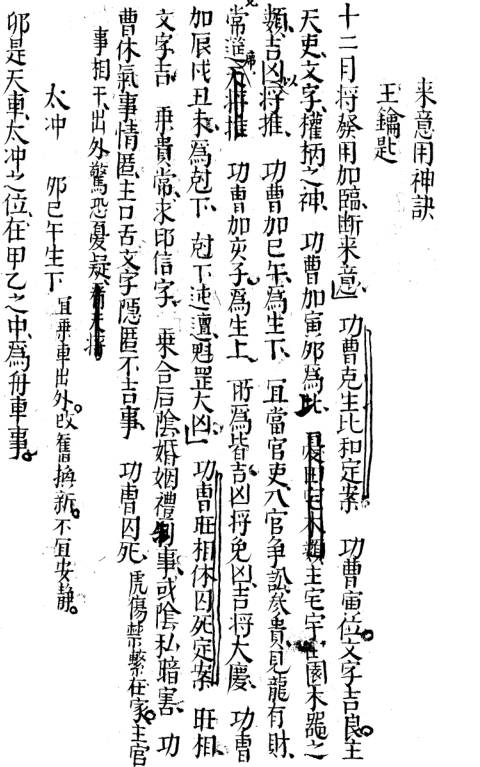 来意用神訣
玉鑰匙
十二月将發用加臨断来意 功曹克生比和定案 功曹寅位文字吉良主
天吏文字權柄之神 功曹加寅卯為比 憂田宅木類主宅宇園木器之
類吉凶以将推 功曹加巳午為生下 冝當官吏入官争訟参貴見龍有財
常逆 将推 功曹加亥子為生上 所為皆吉凶将免凶吉将大慶 功曹
加辰戌丑未為尅下 尅下迍邅魁罡大凶 功曹旺相休囚死定案 旺相
文字吉 乗貴常求印信字 乗合后陰婚姻禮制事或陰私暗害 功
曹休氣事情匿主口舌文字隱匿不吉事 功曹囚死 虎傷禁繫在家主官
事相干出外驚恐憂疑
太冲 卯巳午生下 冝乗車出外改舊換新不冝安静
卯是天車太冲之位在甲乙之中為舟車事